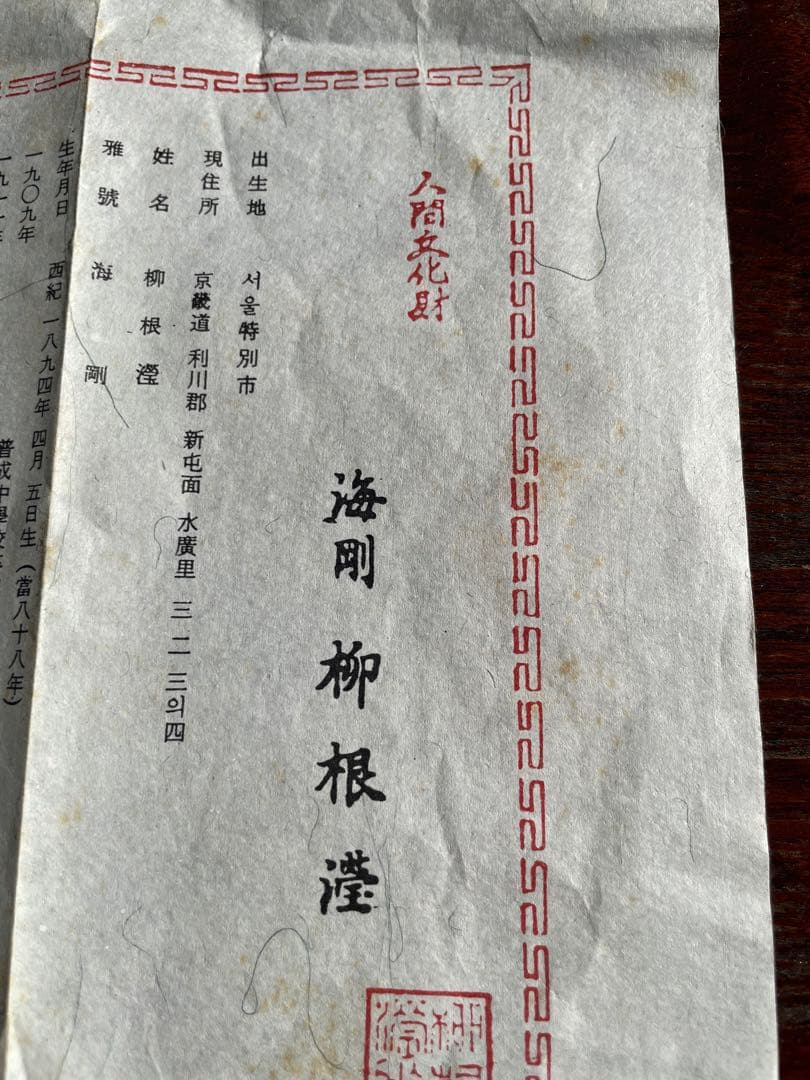 人間文化財
海剛 柳根瀅
出生地 서울特別市
現住所 京畿道 利川郡 新屯面 水廣里 三二三의四
姓名 柳根瀅
雅號 海剛
生年月日 西紀 一八九四年 四月 五日生 (當八十八年)
一九〇九年 普成中學校